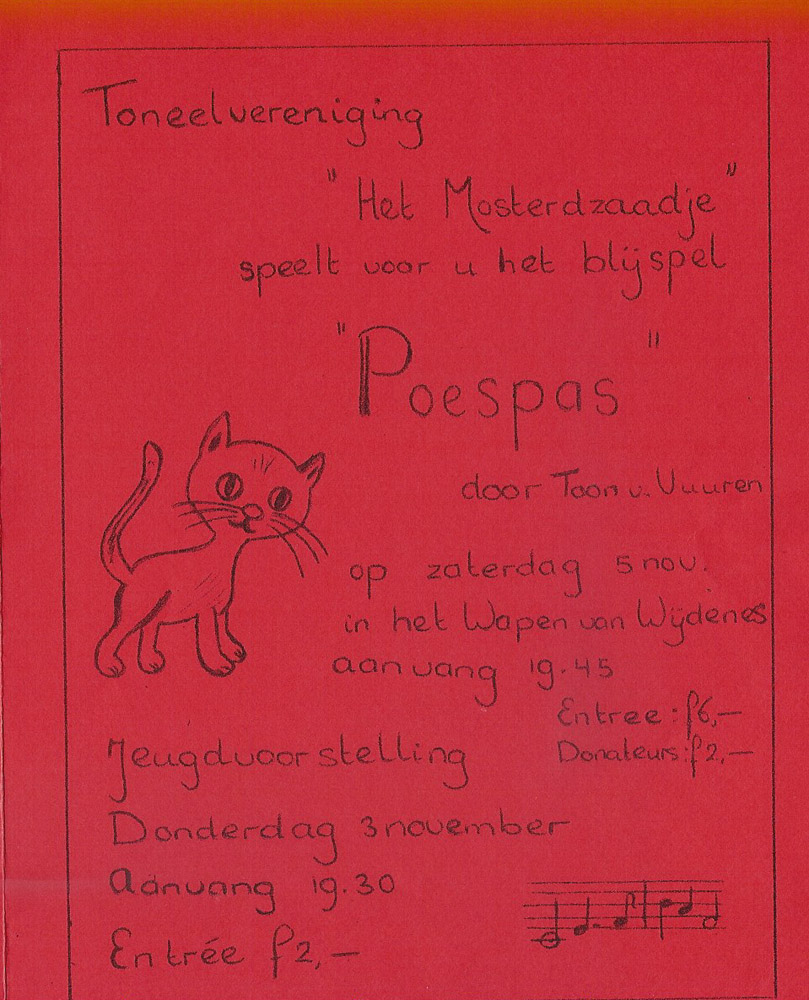 Toneelvereniging
"Het Mosterdzaadje"
speelt voor u het blijspel
"Poespas"
door Toon v. Vuuren
op zaterdag 5 nov.
in het Wapen van Wijdenes
aanvang 19.45
Entree: f6,—
Donateurs: f2,—
Jeugdvoorstelling
Donderdag 3 november
Aanvang 19.30
Entrée f2,—